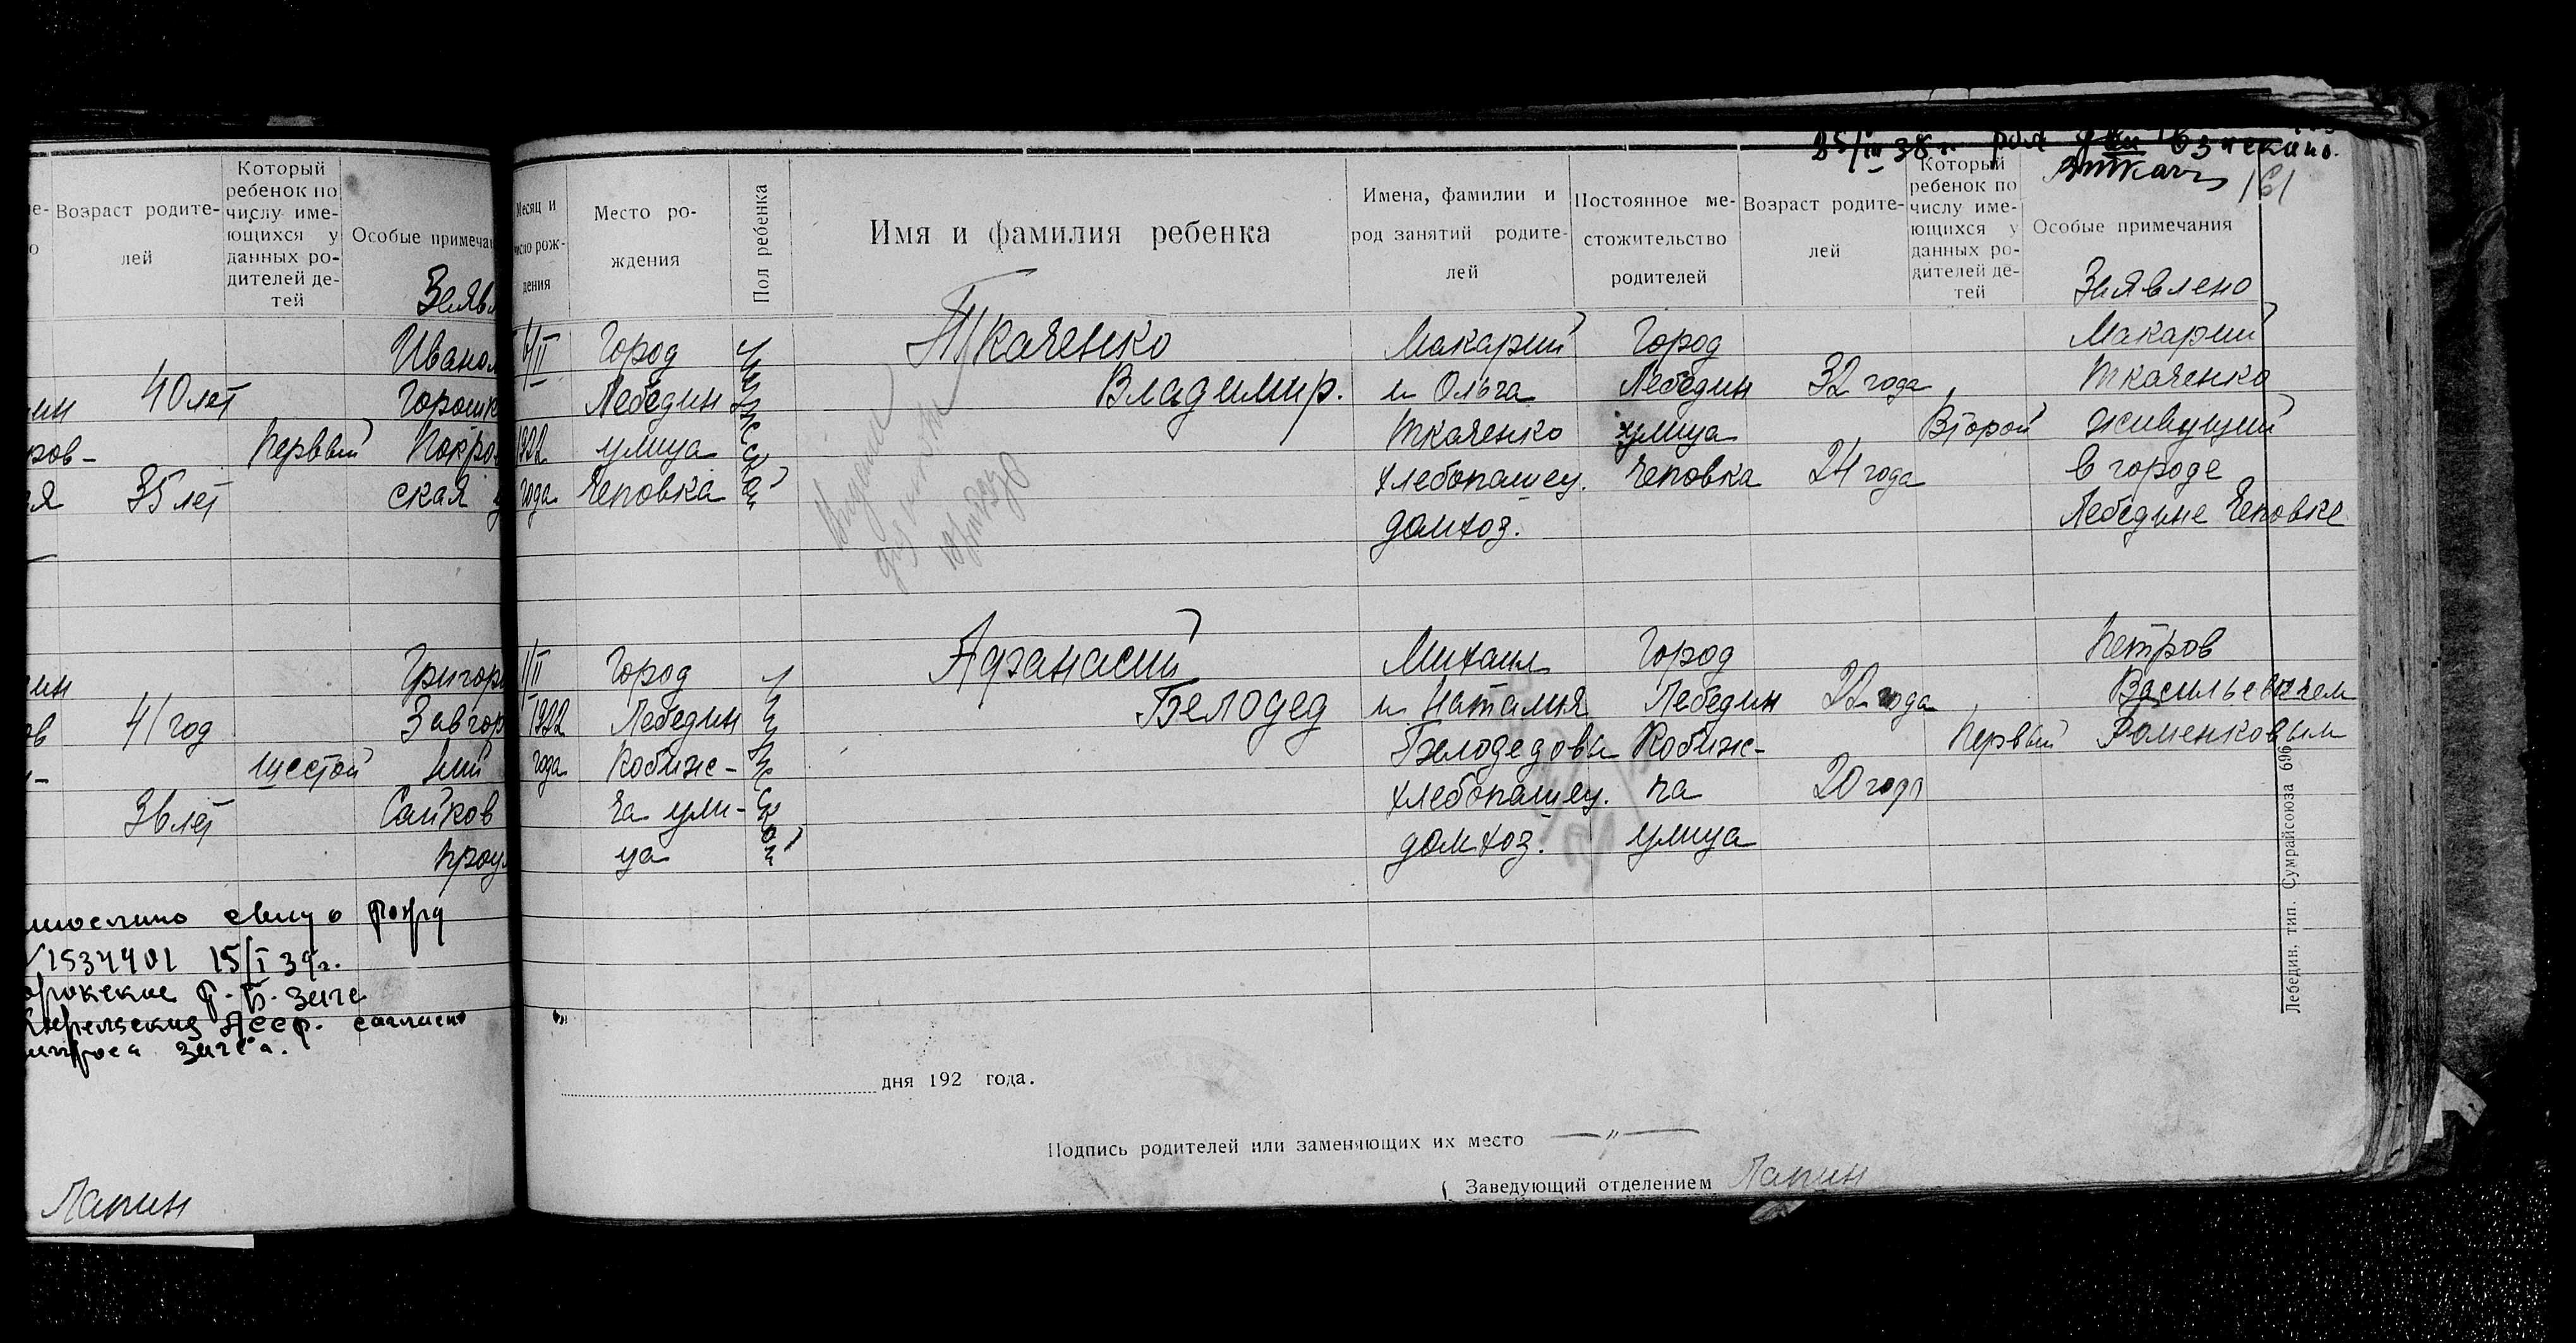 Возраст родите-
лей
Который
ребенок по
числу име-
ющихся у
данных ро-
дителей де-
тей
Особые примечан
Заявл
Ивано
40 лет
Горошк
Первый
Покро
35 лет
ская
Григор
41 год
Завгор
шестой
ний
36 лет
Сайков
проул
15/I 39г.
загса.
Лапин
25/III 38 г.
161
Месяц и
число рож-
дения
Место ро-
ждения
Пол ребенка
Имя и фамилия ребенка
Имена, фамилии и
род занятий родите-
лей
Постоянное ме-
стожительство
родителей
Возраст родите-
лей
Который
ребенок по
числу име-
ющихся у
данных ро-
дителей де-
тей
Особые примечания
Заявлено
6/II
1922
года
Город
Лебедин
улица
Чеповка
Мужской
Ткаченко
Владимир.
Макарий
и Ольга
Ткаченко
хлебопашец.
домхоз.
Город
Лебедин
улица
Чеповка
32 года
24 года
Второй
Макарий
Ткаченко
живущий
в городе
Лебедине Чеповке
1/II
1922
года
Город
Лебедин
Кобиж-
ча ули-
ца
Мужской
Афанасий
Белодед
Михаил
и Наталия
Белодедовы
хлебопашец.
домхоз.
Город
Лебедин
Кобиж-
ча
улица
22 года
20 года
Первый
Петров
Васильевичем
Роменковым
дня 192 года.
Подпись родителей или заменяющих их место — „ —
Заведующий отделением Лапин
Лебедин, тип. Сумрайсоюза 696